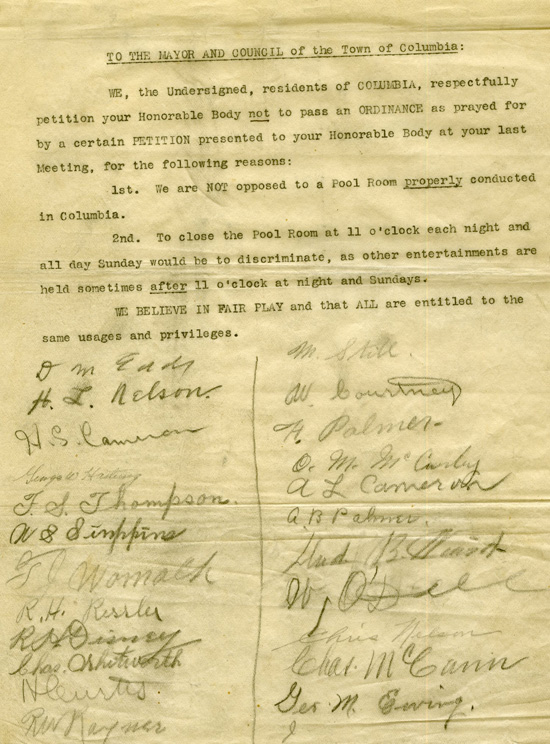 TO THE MAYOR AND COUNCIL of the Town of Columbia:
WE, the Undersigned, residents of COLUMBIA, respectfully
petition your Honorable Body not to pass an ORDINANCE as prayed for
by a certain PETITION presented to your Honorable Body at your last
Meeting, for the following reasons:
1st. We are NOT opposed to a Pool Room properly conducted
in Columbia.
2nd. To close the Pool Room at 11 o'clock each night and
all day Sunday would be to discriminate, as other entertainments are
held sometimes after 11 o'clock at night and Sundays.
WE BELIEVE IN FAIR PLAY and that ALL are entitled to the
same usages and privileges.
D M Eads
H. L. Nelson.
H. S. Cameron
F. S. Thompson.
W S Simpkins
T J Womack
R. H. Kessler
R H Disney
Chas. Whitworth
N Curtis.
Raynor
M. Still.
W. Courtney
H. Palmer
O. M. McCurley
A L Cameron
A. B Palmer.
W. O'Dell
Chris Nelson
Chas. McCann
Geo M. Ewing.